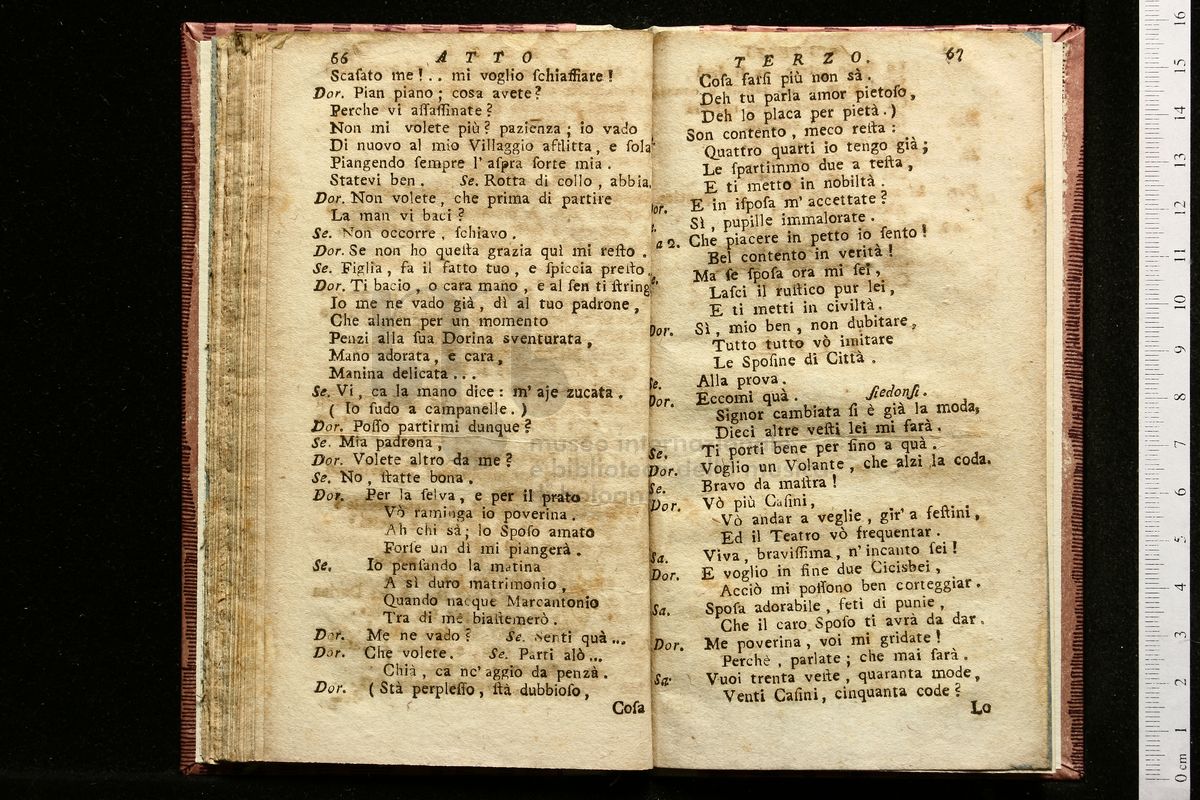 66 ATTO
Scaſato me! .. mi voglio ſchiaffiare!
Dor. Pian piano; cosa avete?
Perche vi aſſaſſinate?
Non mi volete più? pazienza; io vado
Di nuovo al mio Villaggio afflitta, e ſola
Piangendo ſempre l' aſpra ſorte mia.
Statevi ben. Se. Rotta di collo, abbia,
Dor. Non volete, che prima di partire
La man vi baci?
Se. Non occorre, ſchiavo.
Dor. Se non ho queſta grazia quì mi reſto.
Se. Figlia, fa il fatto tuo, e ſpiccia preſto.
Dor. Ti bacio, o cara mano, e al ſen ti ſtring
Io me ne vado già, dì al tuo padrone,
Che almen per un momento
Penzi alla ſua Dorina sventurata,
Mano adorata, e cara,
Manina delicata...
Se. Vi, ca la mano dice: m' aje zucata.
( Io ſudo a campanelle. )
Dor. Poſſo partirmi dunque?
Se. Mia padrona,
Dor. Volete altro da me?
Se. No, ſtatte bona.
Dor. Per la ſelva, e per il prato
Vò raminga io poverina.
Ah chi sà; lo Spoſo amato
Forſe un dì mi piangerà.
Se. Io penſando la matina
A sì duro matrimonio,
Quando nacque Marcantonio
Tra di me biaſtemerò.
Dor. Me ne vado? Se. Senti quà...
Dor. Che volete. Se. Parti alò...
Chià, ca nc' aggio da penzà.
Dor. (Stà perpleſſo, ſtà dubbioſo,
Coſa
TERZO. 67
Coſa farſi più non sà.
Deh tu parla amor pietoſo,
Deh lo placa per pietà.)
Son contento, meco reſta:
Quattro quarti io tengo già;
Le ſpartimmo due a teſta,
E ti metto in nobiltà.
or. E in iſpoſa m' accettate?
Sì, pupille immalorate.
a 2. Che piacere in petto io ſento!
Bel contento in verità!
e. Ma ſe ſpoſa ora mi ſei,
Laſci il ruſtico pur lei,
E ti metti in civiltà.
Dor. Sì, mio ben, non dubitare,
Tutto tutto vò imitare
Le Spoſine di Città.
Se. Alla prova.
Dor. Eccomi quà. ſiedonſi.
Signor cambiata ſi è già la moda,
Dieci altre veſti lei mi farà.
Se. Ti porti bene per ſino a quà.
Dor. Voglio un Volante, che alzi la coda.
Se. Bravo da maſtra!
Dor. Vò più Caſini,
Vò andar a veglie, gir' a feſtini,
Ed il Teatro vò frequentar.
Sa. Viva, braviſſima, n' incanto ſei!
Dor. E voglio in fine due Cicisbei,
Acciò mi poſſono ben corteggiar.
Sa. Spoſa adorabile, feti di punie,
Che il caro Spoſo ti avrà da dar.
Dor. Me poverina, voi mi gridate!
Perchè, parlate; che mai farà.
Sa. Vuoi trenta veſte, quaranta mode,
Venti Caſini, cinquanta code?
Lo